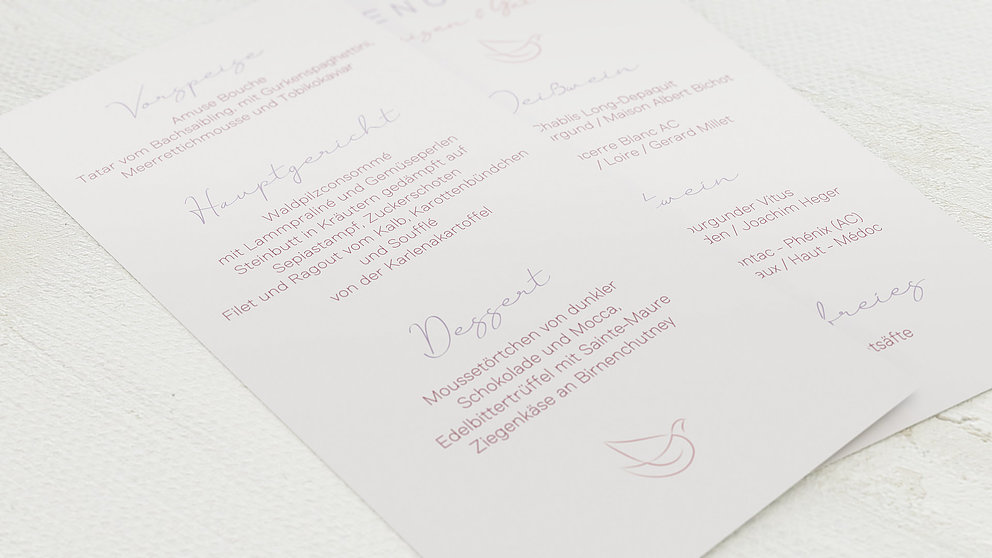 Vorspeise
Amuse Bouche
Tatar vom Bachsaibling, mit Gurkenspaghettini,
Meerrettichmousse und Tobikokaviar
Hauptgericht
Waldpilzconsommé
mit Lammpraliné und Gemüseperlen
Steinbutt in Kräutern gedämpft auf
Sepiastampf, Zuckerschoten
Filet und Ragout vom Kalb, Karottenbündchen
und Soufflé
von der Karlenakartoffel
Dessert
Moussetörtchen von dunkler
Schokolade und Mocca,
Edelbittertrüffel mit Sainte-Maure
Ziegenkäse an Birnenchutney
ENU
eißwein
Chablis Long-Depaquit
urgund / Maison Albert Bichot
ncerre Blanc AC
/ Loire / Gerard Millet
wein
burgunder Vitus
den / Joachim Heger
ntac - Phénix (AC)
aux / Haut - Médoc
freies
tsäfte